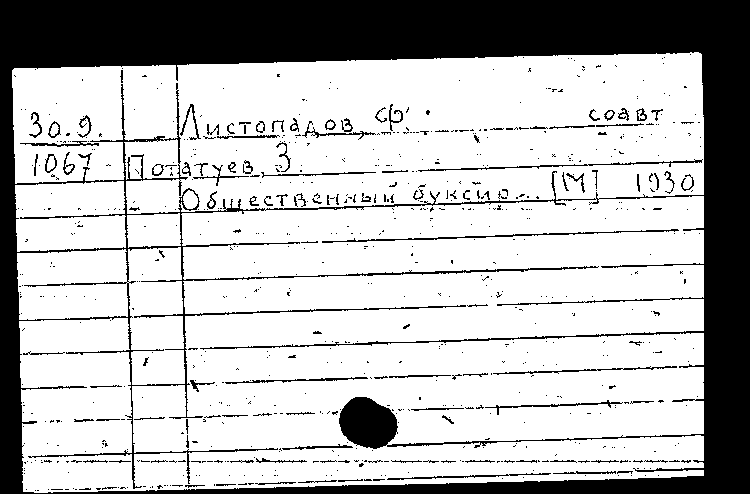 30.9. Листопадов, Ф. соавт
1067 Потатуев, З.
Общественный буксир... [М] 1930